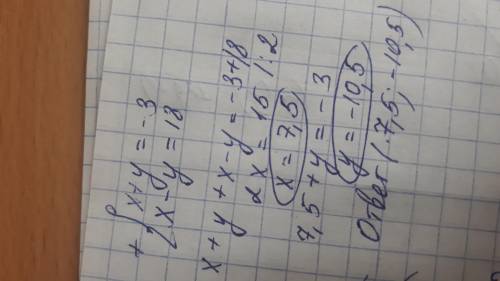 + { x+y=-3
x-y=18
x+y+x-y=-3+18
2x=15 |:2
x=7,5
7,5+y=-3
y=-10,5
Ответ (7,5; -10,5)